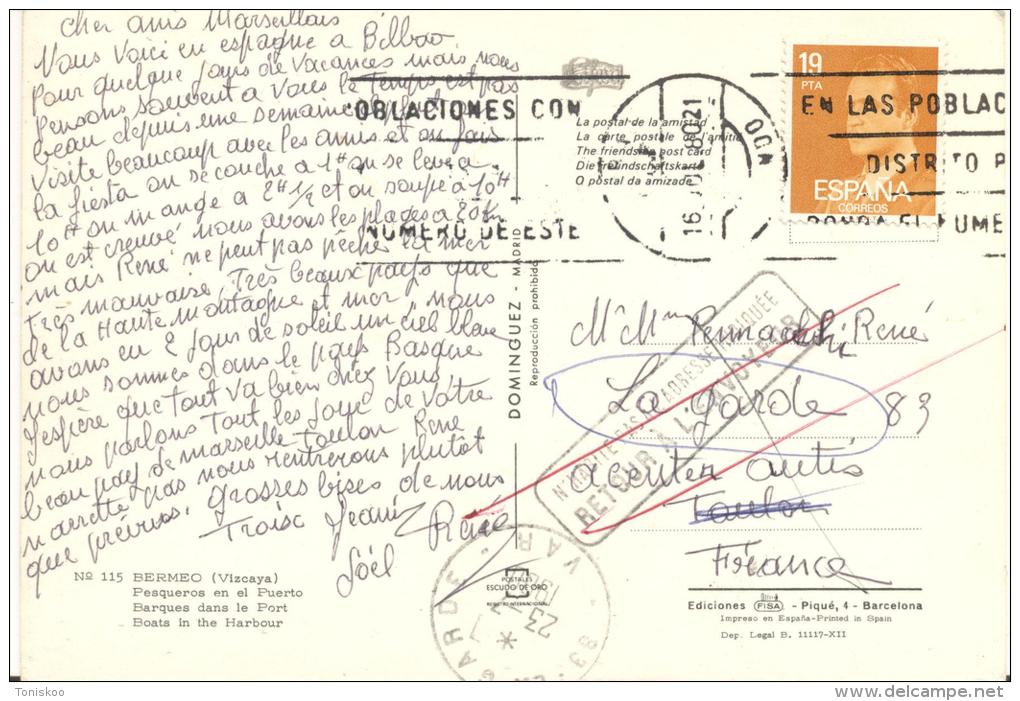 Cher amis Marseillais
Nous Voici en espagne a Bilbao
Pour quelque jours de vacances mais nous
pensons souvent a Vous le Temps est pas
beau depuis une semaine
Visite beaucoup avec les amis et on fais
la fiesta on se couche a 1H on se leve a
10H on mange a 2H 1/2 et on soupe a 10H
on est crevé nous avons les plages a 20 km
mais René ne peut pas pêcher la mer
Très mauvaise, Très beaux pays que
de la Haute montagne et mer, nous
avons eu 2 jours de soleil un ciel blanc
nous sommes dans le pays Basque
J'espère que tout va bien chez Vous
nous parlons tout les jour de Vôtre
beau pays de marseille toulon René
narrette pas nous rentrerons plutôt
que prévus. Grosses bises de nous
Trois Jeani René
Joël
Nº 115 BERMEO (Vizcaya)
Pesqueros en el Puerto
Barques dans le Port
Boats in the Harbour
DOMINGUEZ - MADRID
Reproducción prohibida
POSTALES
ESCUDO DE ORO
REGISTRO INTERNACIONAL
La postal de la amistad
La carte postale de l'amitié
The friendship post card
Die freundschaftskarte
O postal da amizade
OBLACIONES CON
NUMERO DE ESTE
EN LAS POBLAC
DISTRITO P
PONGA EL NUME
19
PTA
ESPAÑA
CORREOS
N'HABITE PAS A L'ADRESSE INDIQUÉE
RETOUR A L'ENVOYEUR
Mr Mme Pennacchi René
La garde 83
Toulon
France
LA GARDE
VAR
83
23-7
Ediciones FISA - Piqué, 4 - Barcelona
Impreso en España-Printed in Spain
Dep. Legal B. 11117-XII
Toniskoo
www.delcampe.net